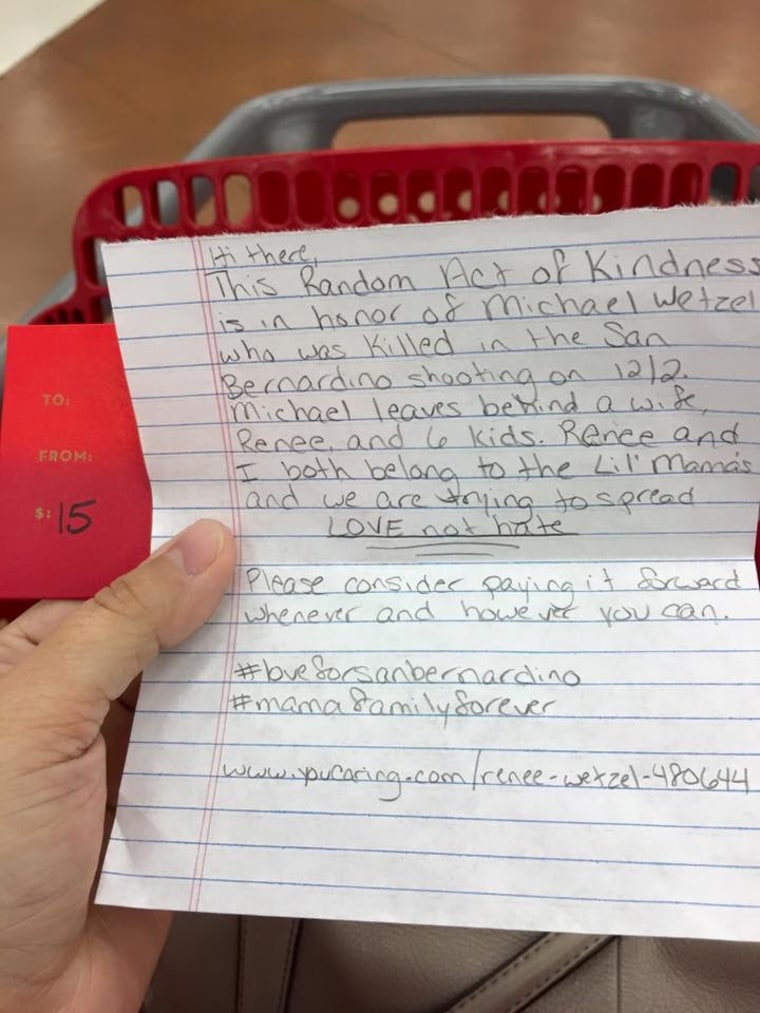 Hi there,
This Random Act of Kindness
is in honor of Michael Wetzel
who was killed in the San
Bernardino shooting on 12/2.
Michael leaves behind a wife,
Renee, and 6 kids. Renee and
I both belong to the Lil' Mama's
and we are trying to spread
LOVE not hate
Please consider paying it forward
whenever and however you can.
#loveforsanbernardino
#mamafamilyforever
www.youcaring.com/renee-wetzel-480644
TO:
FROM:
$: 15